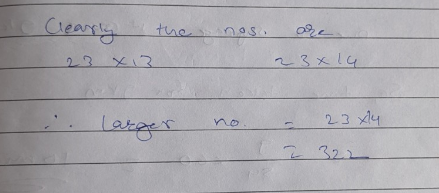 Clearly the nos. are
23 × 13 23 × 14
∴ larger no. = 23 × 14
= 322